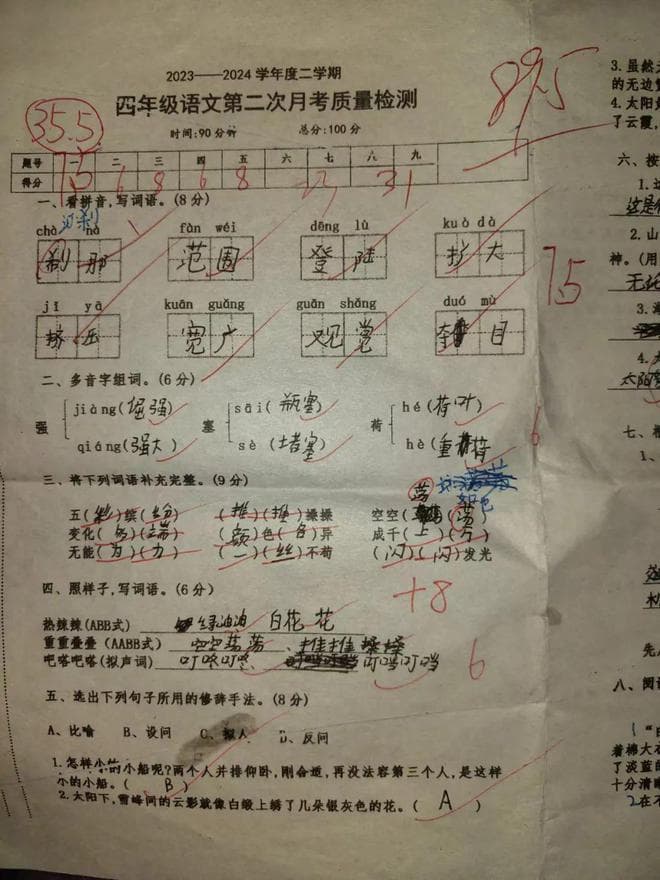 2023——2024学年度二学期
四年级语文第二次月考质量检测
89.5
35.5
时间:90分钟 总分:100分
题号 二 三 四 五 六 七 八 九
得分 7.5 6 8 6 8 31
一、看拼音,写词语。(8分)
chà nà fàn wéi dēng lù kuò dà
刹那 范围 登陆 扩大
7.5
jǐ yā kuān guǎng guān shǎng duó mù
挤压 宽广 观赏 夺目
二、多音字组词。(6分)
强 jiàng(倔强) 塞 sāi(瓶塞) 荷 hé(荷叶)
qiáng(强大) sè(堵塞) hè(重荷)
6
三、将下列词语补充完整。(9分)
五(彩)缤(纷) (推)(推)搡搡 空空(荡)(荡)
变化(多)(端) (颜)色(各)异 成千(上)(万)
无能(为)(力) (一)(丝)不苟 (闪)(闪)发光
+8
四、照样子,写词语。(6分)
热辣辣(ABB式) 绿油油 白花花
重重叠叠(AABB式) 空空荡荡、推推搡搡
吧嗒吧嗒(拟声词) 叮咚叮咚、叮当叮当
6
五、选出下列句子所用的修辞手法。(8分)
A、比喻 B、设问 C、拟人 D、反问
1.怎样小的小船呢?两个人并排仰卧,刚合适,再没法容第三个人,是这样
小的小船。( B )
2.太阳下,雪峰间的云影就像白缎上绣了几朵银灰色的花。( A )
3.虽然
的无边
4.太阳
了云霞,
六、按
1.
这是
2.山
神。(用
无
3.
4.
太阳
七、
1、
先
八、阅
1
着棉大
了淡蓝
十分清
2在